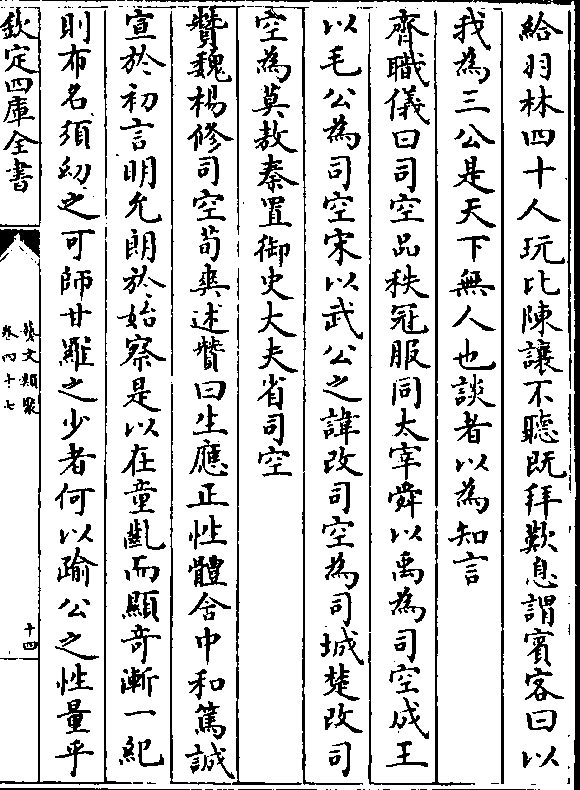 給羽林四十人玩比陳讓不聽既拜歎息謂賓客曰以
我為三公是天下無人也談者以為知言
齊職儀曰司空品秩冠服同太宰舜以禹為司空成王
以毛公為司空宋以武公之諱改司空為司城楚改司
空為莫敖秦置御史大夫省司空
贊魏楊修司空荀爽述贊曰生應正性體含中和篤誠
宣於初言明允朗於始察是以在童齔而顯奇漸一紀
則布名須幼之可師甘羅之少者何以踰公之性量乎
欽定四庫全書
藝文類聚
卷四十七
十四